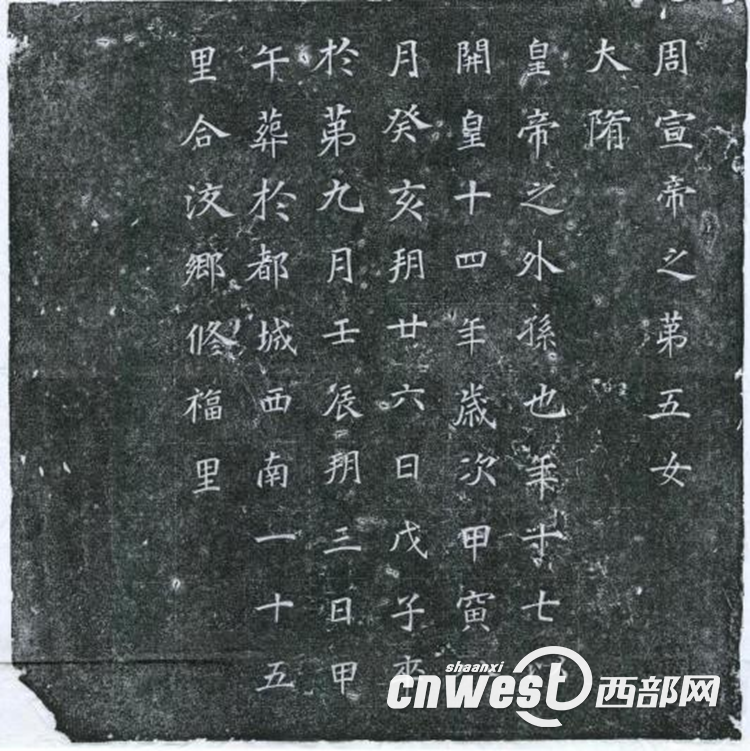 周宣帝之苐五女
大隋
皇帝之外孫也年十七
開皇十四年歲次甲寅
月癸亥朔廿六日戊子
於苐九月壬辰朔三日甲
午葬於都城西南一十五
里合洨鄉修福里
shaanxi
cnwest西部网